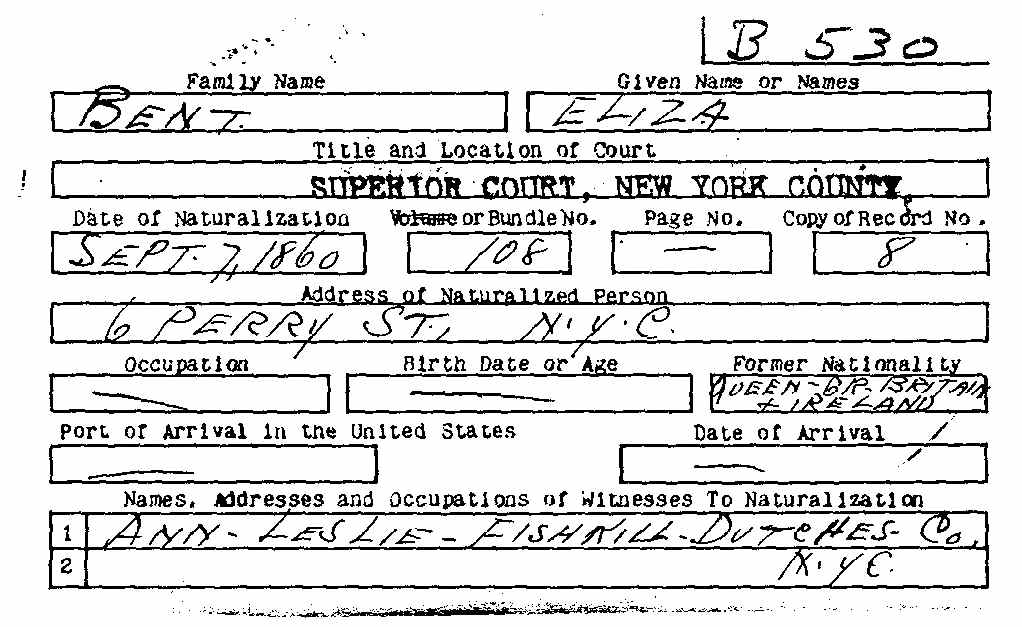 B 530
Family Name Given Name or Names
BENT. ELIZA
Title and Location of Court
SUPERIOR COURT, NEW YORK COUNTY,
Date of Naturalization Volume or Bundle No. Page No. Copy of Record No.
SEPT. 7, 1860 108 — 8
Address of Naturalized Person
6 PERRY ST., N.Y.C.
Occupation Birth Date or Age Former Nationality
— — QUEEN-GR. BRITAIN
+ IRELAND
Port of Arrival in the United States Date of Arrival
— —
Names, Addresses and Occupations of Witnesses To Naturalization
1 ANN - LESLIE - FISHKILL - DUTCHES - CO.
2 N.YC.